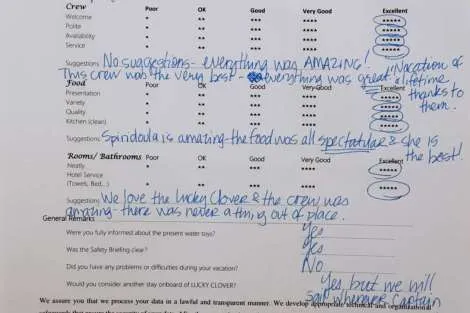 Crew Poor OK Good Very Good Excellent
Welcome * ** *** **** *****
Polite * ** *** **** *****
Availability * ** *** **** *****
Service * ** *** **** *****
Suggestions No suggestions - everything was AMAZING!
This crew was the very best - everything was great. "Vacation of
a lifetime
thanks to
them.
Food Poor OK Good Very Good Excellent
Presentation * ** *** **** *****
Variety * ** *** **** *****
Quality * ** *** **** *****
Kitchen (clean) * ** *** **** *****
Suggestions Spiridoula is amazing - the food was all spectatular & she is
the best!
Rooms/ Bathrooms Poor OK Good Very Good Excellent
Neatly * ** *** **** *****
Hotel Service
(Towels, Bed...) * ** *** **** *****
Suggestions We love the Lucky Clover & the crew was
amazing - there was never a thing out of place.
General Remarks
Were you fully informed about the present water toys? Yes
Was the Safety Briefing clear? Yes
Did you have any problems or difficulties during your vacation? No
Would you consider another stay onboard of LUCKY CLOVER? Yes, but we will
sail whenever Captain
We assure you that we process your data in a lawful and transparent manner. We develop appropriate technical and organizational